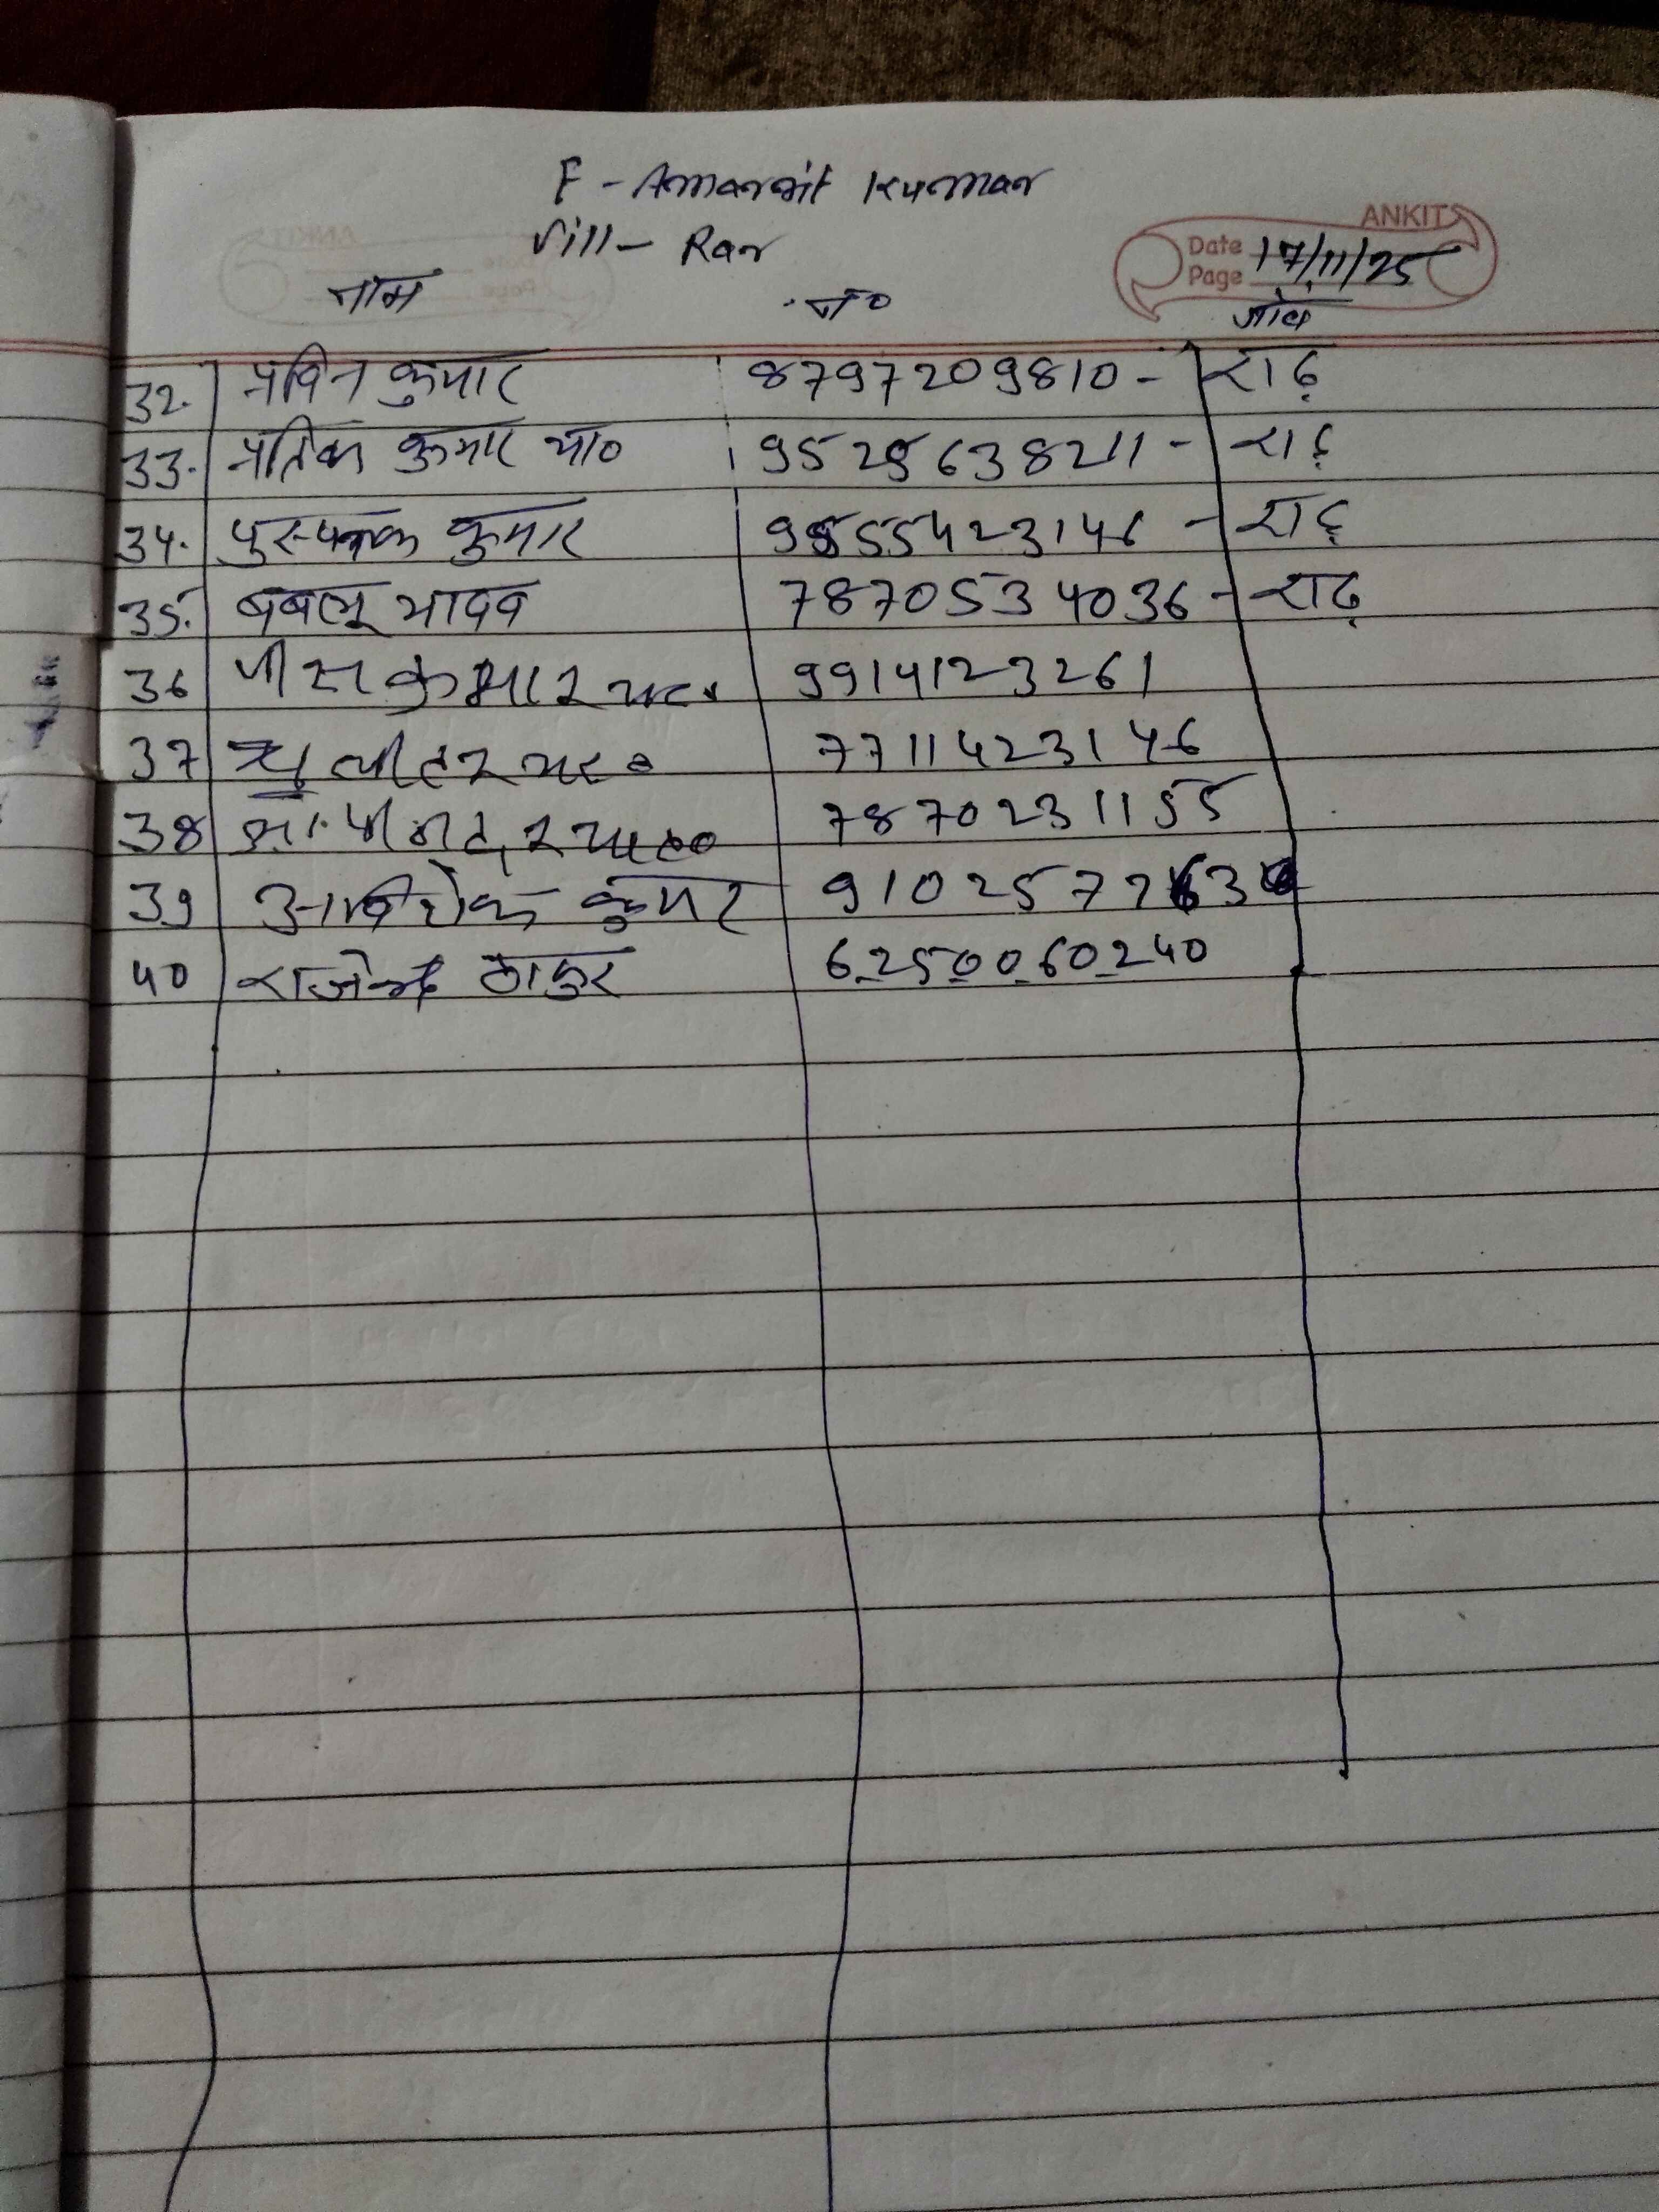 F - Amarjit Kumar
Vill - Rar
ANKIT
Date 17/11/25
Page
नाम नं० गाँव
32. प्रविन कुमार 8797209810 - राढ़
33. प्रतिक कुमार या० 9525638211 - राढ़
34. कुमार 9555423146 - राढ़
35. बबलू यादव 7870534036 - राढ़
36 कुमार 9914123261
37 7711423146
38 7870231155
39 कुमार
40 राजेन्द्र ठाकुर 6250060240